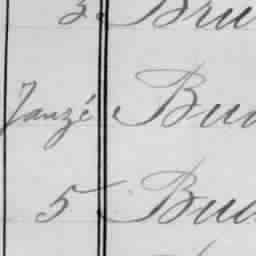 3 Bru
Janzé Bud
5 Bud